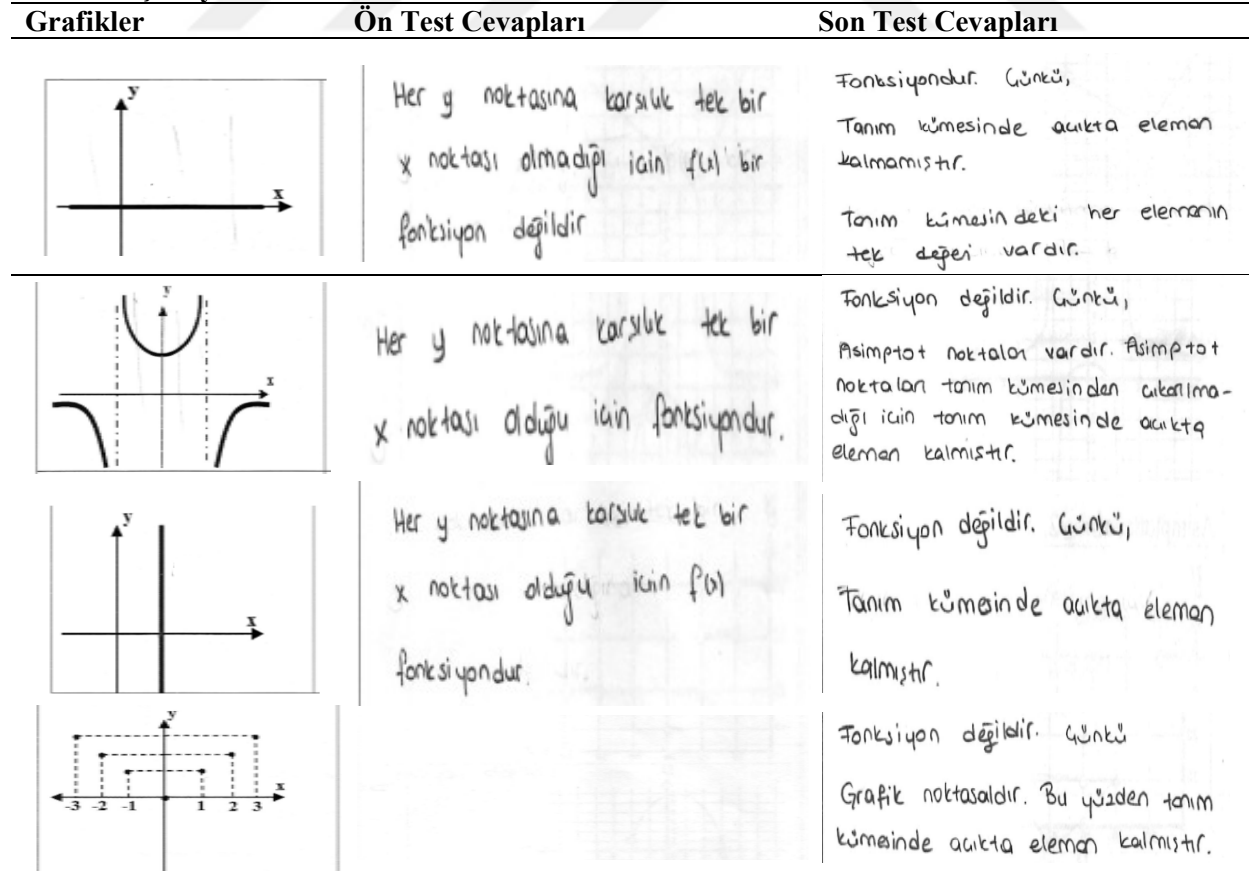 Grafikler Ön Test Cevapları Son Test Cevapları
y
x
Her y noktasına karşılık tek bir
x noktası olmadığı için f(x) bir
fonksiyon değildir
Fonksiyondur. Çünkü,
Tanım kümesinde açıkta eleman
kalmamıştır.
Tanım kümesindeki her elemanın
tek değeri vardır.
y
x
Her y noktasına karşılık tek bir
x noktası olduğu için fonksiyondur.
Fonksiyon değildir. Çünkü,
Asimptot noktaları vardır. Asimptot
noktaları tanım kümesinden çıkarılma-
dığı için tanım kümesinde açıkta
eleman kalmıştır.
y
x
Her y noktasına karşılık tek bir
x noktası olduğu için f(x)
fonksiyondur.
Fonksiyon değildir. Çünkü,
Tanım kümesinde açıkta eleman
kalmıştır.
y
x
-3 -2 -1 1 2 3
Fonksiyon değildir. Çünkü
Grafik noktasaldır. Bu yüzden tanım
kümesinde açıkta eleman kalmıştır.